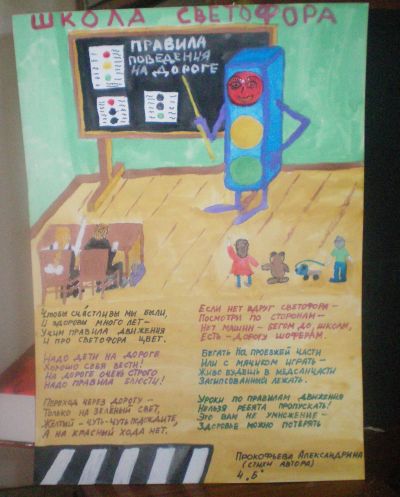 ШКОЛА СВЕТОФОРА
ПРАВИЛА
ПОВЕДЕНИЯ
НА ДОРОГЕ
Чтобы счастливы мы были,
И здоровы много лет –
Учим правила движения
И про светофора цвет.
Надо дети на дороге
Хорошо себя вести!
На дороге очень строго
Надо правила блюсти!
Переход через дорогу –
Только на зелёный свет,
Жёлтый – чуть-чуть подождите,
А на красный хода нет.
Если нет вдруг светофора –
Посмотри по сторонам –
Нет машин – бегом до, школы,
Есть – дорогу шоферам.
Бегать по проезжей части
Или с мячиком играть –
Живо будешь в медсанчасти
Загипсованный лежать.
Уроки по правилам движения
Нельзя ребята пропускать!
Это вам не умножение –
Здоровье можно потерять
Прокофьева Александрина
(стихи автора)
4 „Б"